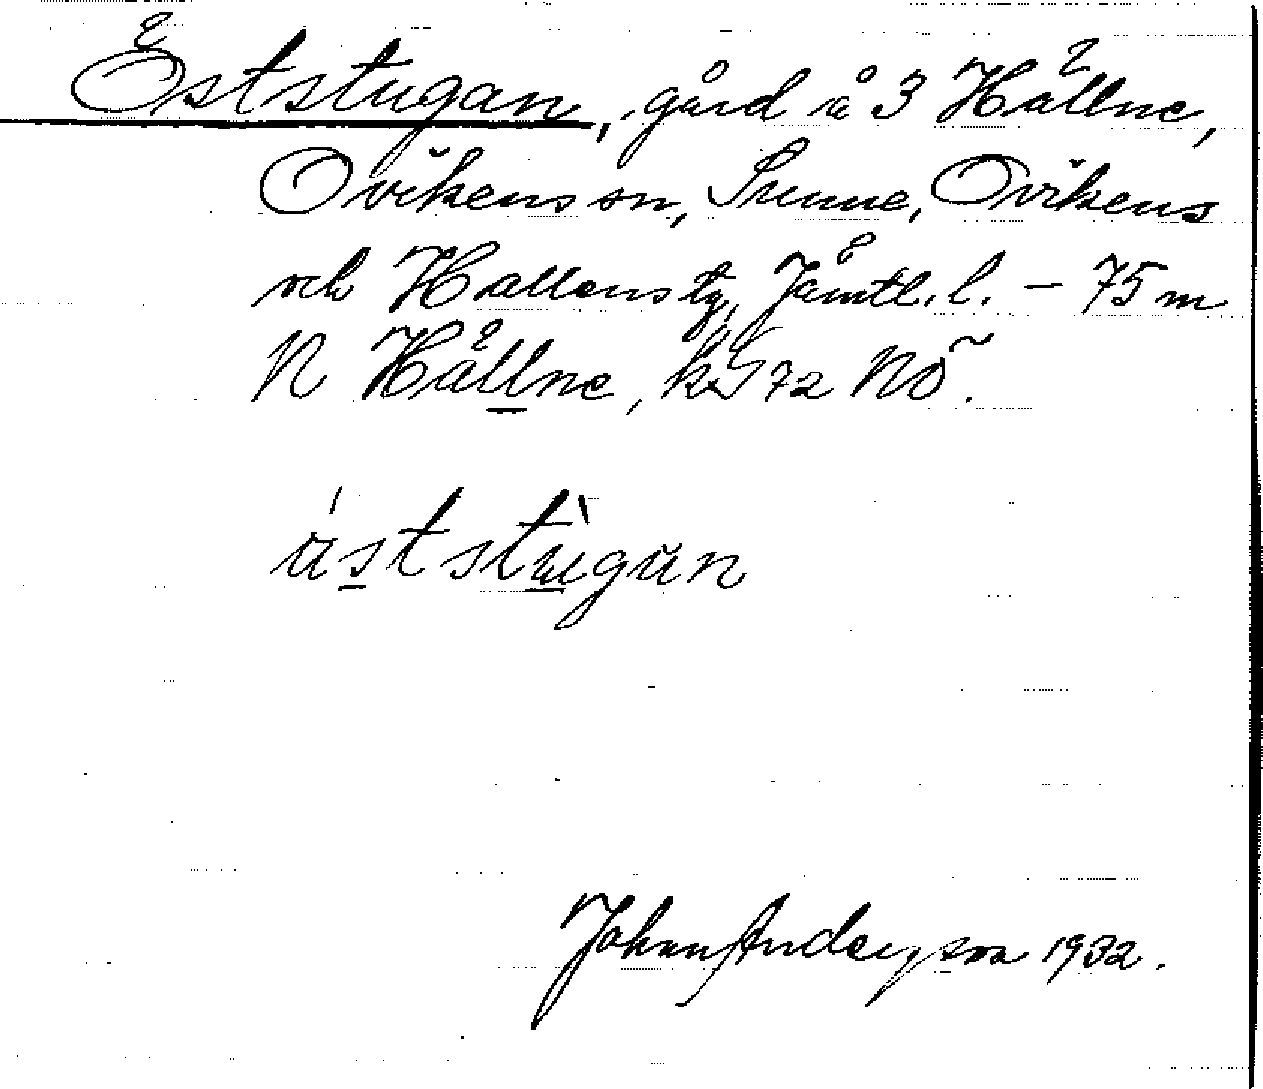 Öststugan, gård å 3 Hällne,
Ovikens sn, Sunne, Ovikens
och Hallens tg, Jämtl. l. – 75 m
N Hällne, kS 72 NÖ.
äststùgün
Johan Anderson 1932.